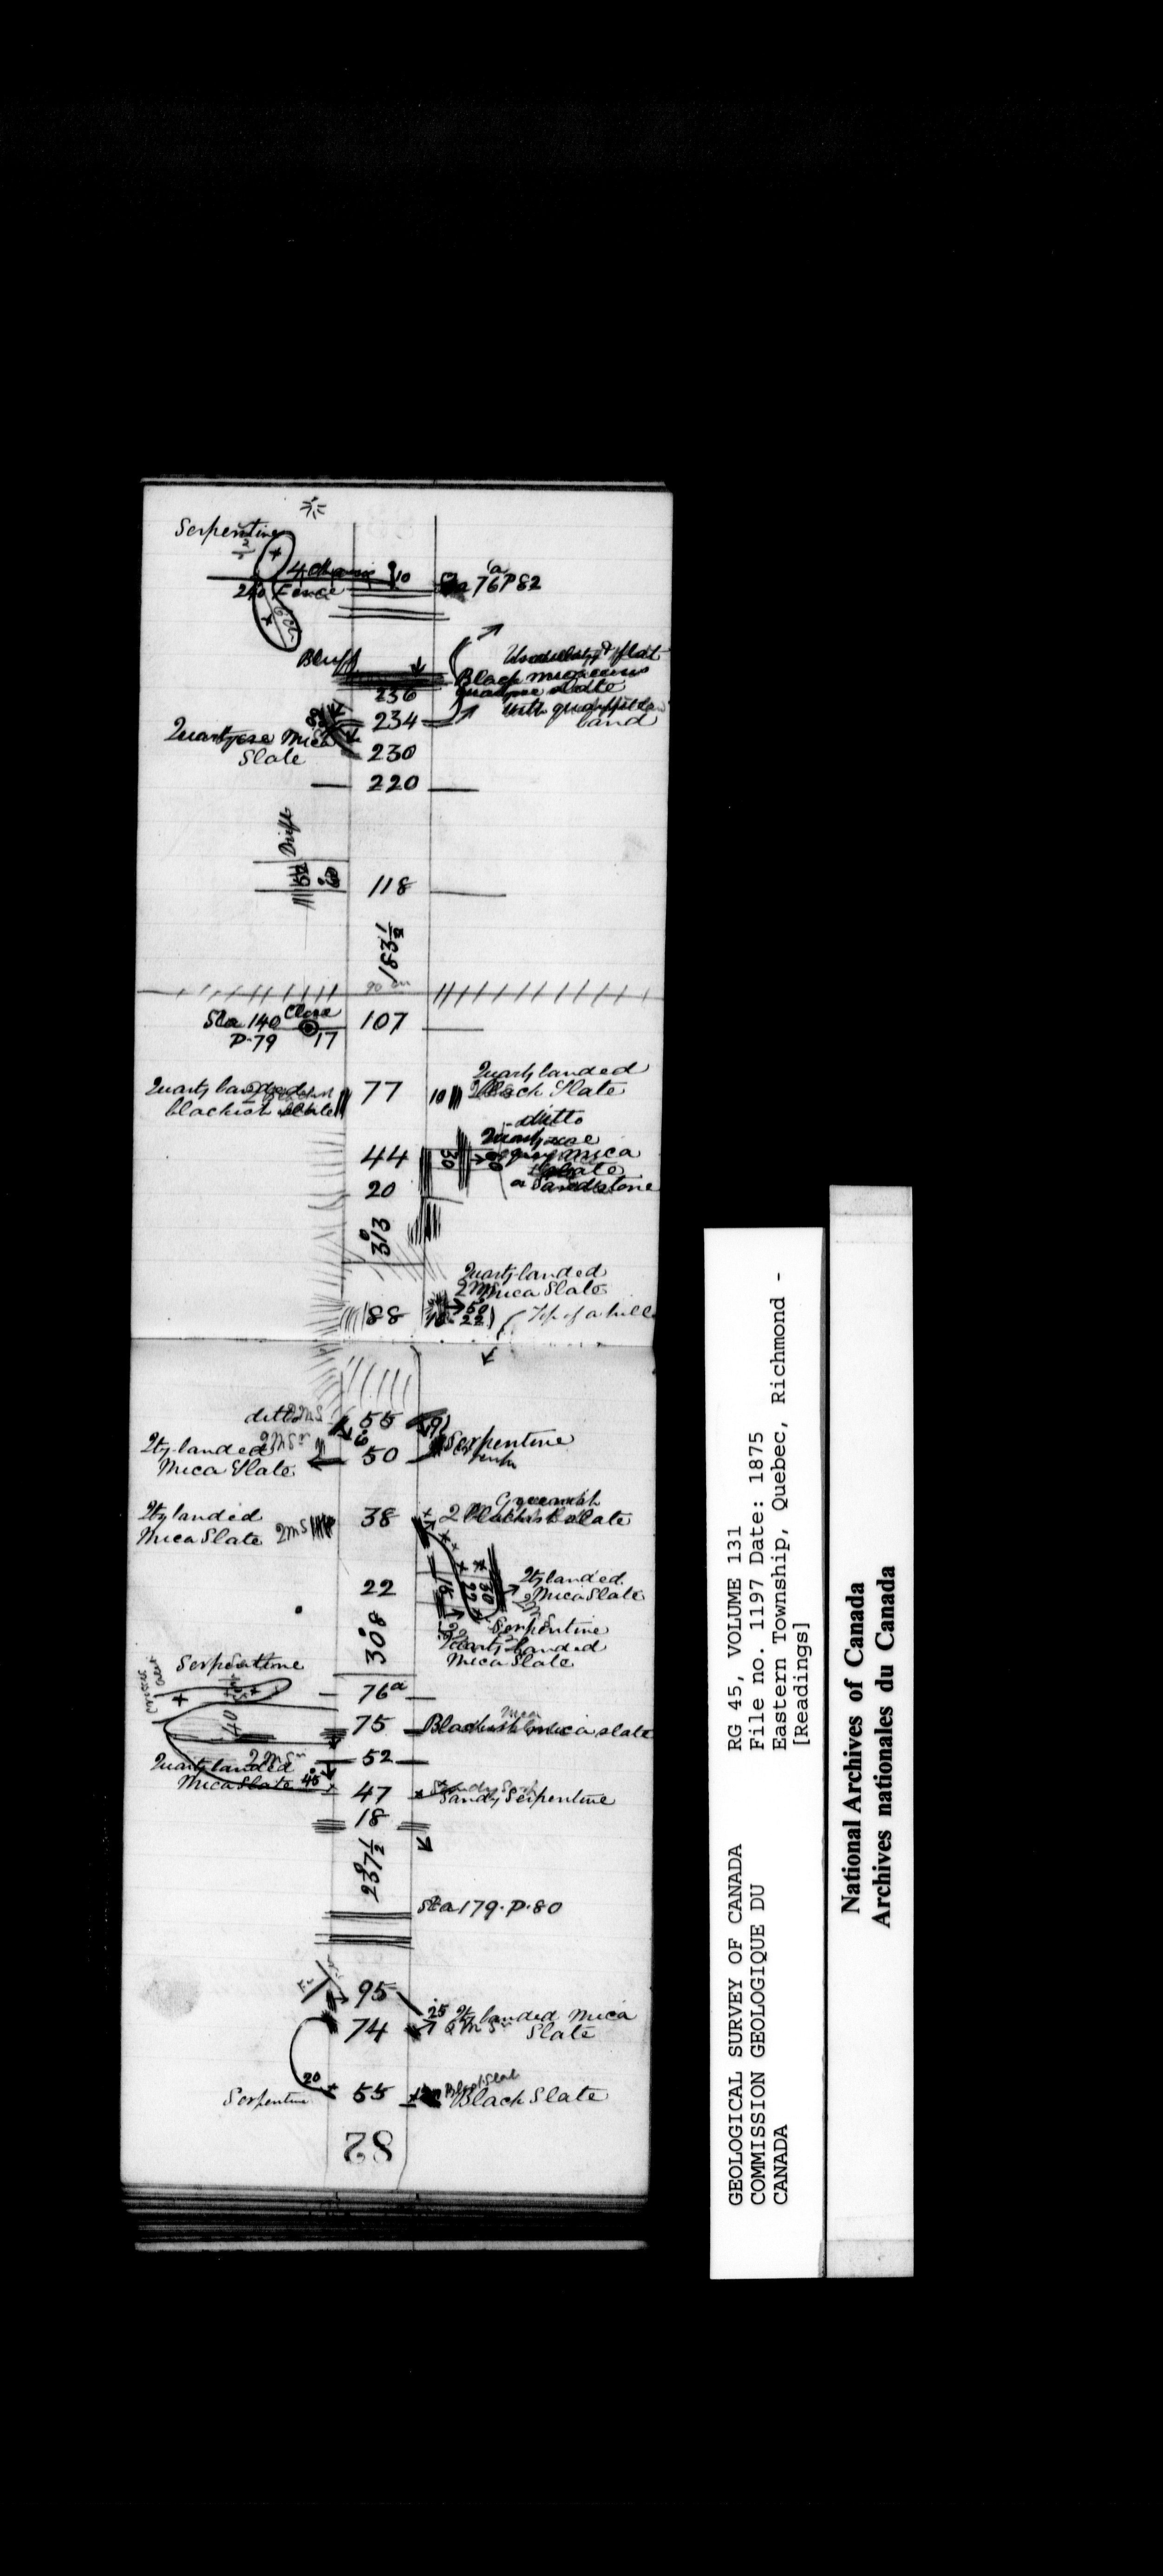 Serpentine
4 chains
10
Sta 76a P 82
240 Fence
Bluff
Black micaceous
quartzose slate
with
band
236
234
Quartzose Mica
Slate
230
220
Drift
118
183 1/2
Sta 140 Close
P-79
17
107
Quartz banded
blackish slate
77
10
Quartz banded
Black Slate
ditto
Quartzose
mica
Slate
or Sandstone
44
30
20
313
Quartz banded
Mica Slate
50
22
Top of a hill
88
ditto
55
6
Qtz banded
Mica Slate
50
Serpentine
Qtz banded
Mica Slate
2 m S
38
Greenish
2 Blackish slate
22
Qtz banded
Mica Slate
Serpentine
Quartz banded
Mica Slate
308
Serpentine
76a
40
75
Blackish mica slate
52
Quartz banded
Mica Slate
45
47
Sandy Serpentine
18
237 1/2
Sta 179. P. 80
95
25 Qtz banded Mica
Slate
74
20
Serpentine
55
Black Slate
Black Slate
82
GEOLOGICAL SURVEY OF CANADA
COMMISSION GEOLOGIQUE DU
CANADA
RG 45, VOLUME 131
File no. 1197 Date: 1875
Eastern Township, Quebec, Richmond -
[Readings]
National Archives of Canada
Archives nationales du Canada